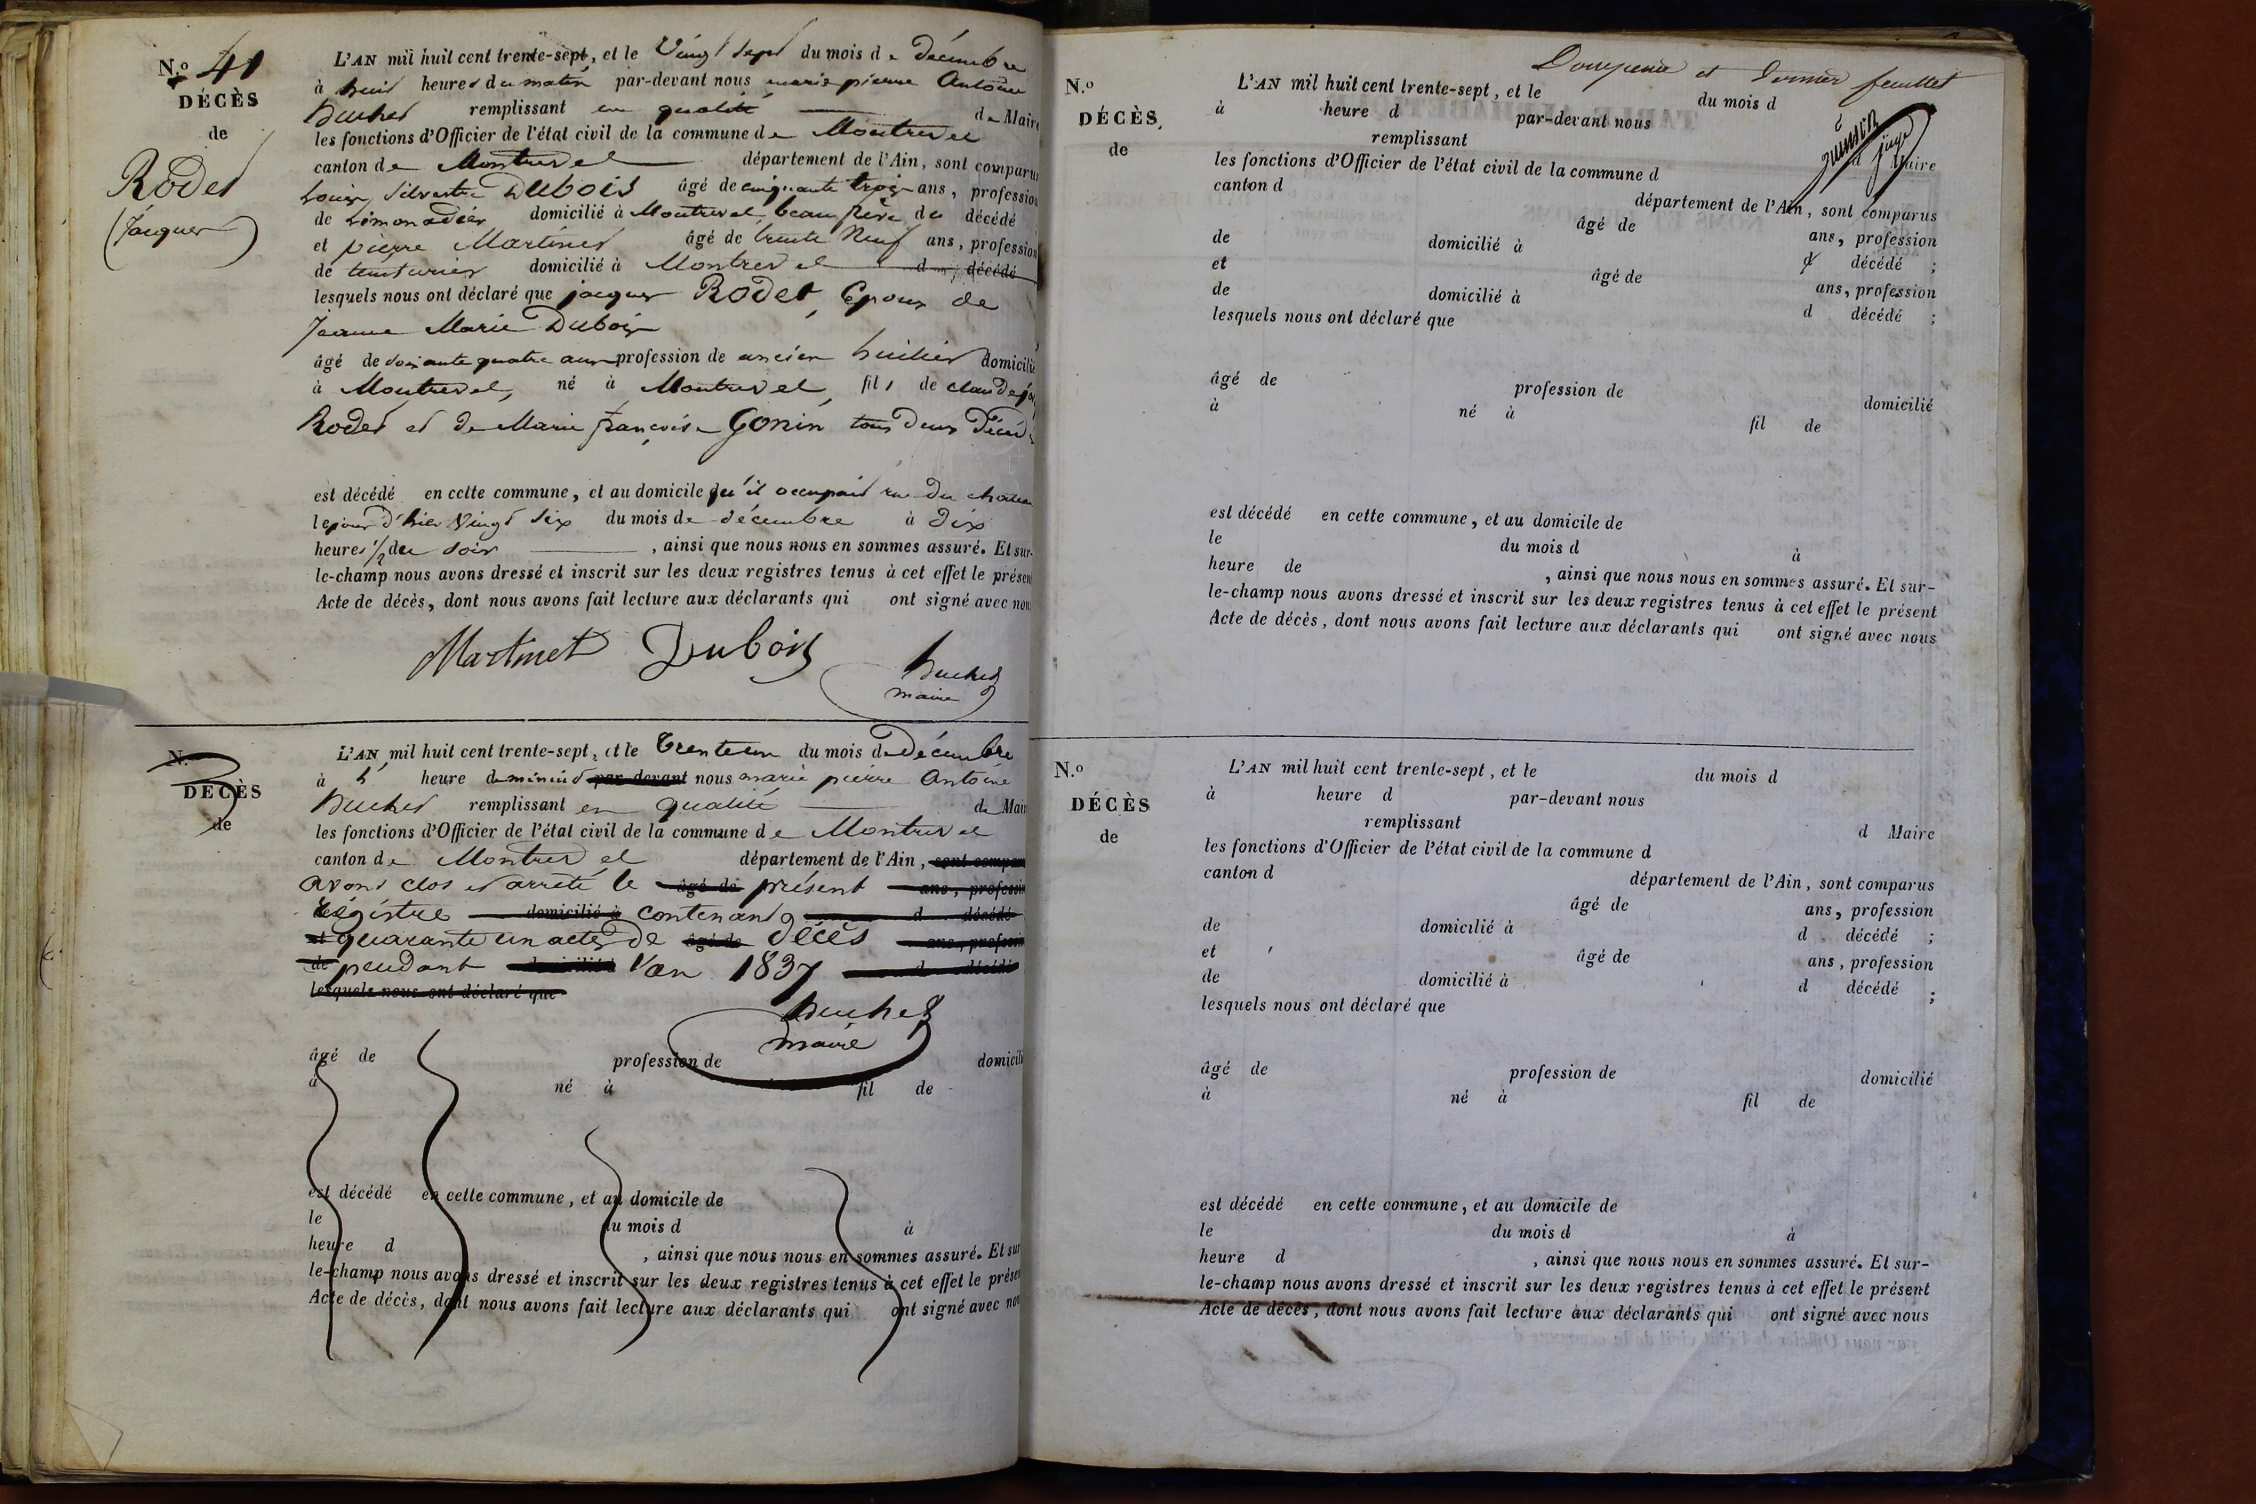 N.º 41
DÉCÈS
de
Rodet
(Jacques)
L'AN mil huit cent trente-sept, et le Vingt Sept du mois de décembre
à huit heures du matin par-devant nous marie pierre Antoine
Buchet remplissant en qualité de Maire
les fonctions d'Officier de l'état civil de la commune de Montrevel
canton de Montrevel département de l'Ain, sont comparus
Louis Silvestre Dubois âgé de cinquante trois ans, profession
de Limonadier domicilié à Montrevel, beau frère du décédé
et pierre Martinet âgé de trente Neuf ans, profession
de teinturier domicilié à Montrevel d décédé
lesquels nous ont déclaré que jacques Rodet, Epoux de
Jeanne Marie Dubois
âgé de soixante quatre ans profession de ancien huilier domicilié
à Montrevel, né à Montrevel, fils de claude
Rodet et de Marie françoise Gonin tous deux décédés
est décédé en cette commune, et au domicile qu'il occupait rue du chateau
le jour d'hier Vingt Six du mois de décembre à dix
heures 1/2 du soir , ainsi que nous nous en sommes assuré. Et sur-
le-champ nous avons dressé et inscrit sur les deux registres tenus à cet effet le présent
Acte de décès, dont nous avons fait lecture aux déclarants qui ont signé avec nous
Martinet Dubois
Buchet
maire
N.
DÉCÈS
de
L'AN mil huit cent trente-sept, et le trente un du mois de décembre
à h heure de minuit par-devant nous marie pierre Antoine
Buchet remplissant en qualité de Maire
les fonctions d'Officier de l'état civil de la commune de Montrevel
canton de Montrevel département de l'Ain, sont comparus
avons clos et arrêté le âgé de présent ans, profession
régistre domicilié à contenant d décédé
et quarante un actes de âgé de décès ans, profession
de pendant domicilié à l'an 1837 d décédé
lesquels nous ont déclaré que
Buchet
maire
âgé de profession de domicilié
à né à fil de
est décédé en cette commune, et au domicile de
le du mois d à
heure d , ainsi que nous nous en sommes assuré. Et sur
le-champ nous avons dressé et inscrit sur les deux registres tenus à cet effet le présent
Acte de décès, dont nous avons fait lecture aux déclarants qui ont signé avec nous
Douzieme et dernier feuillet
N.º
DÉCÈS
de
L'AN mil huit cent trente-sept, et le du mois d
à heure d par-devant nous
remplissant d Maire
juge
les fonctions d'Officier de l'état civil de la commune d
canton d département de l'Ain, sont comparus
âgé de ans, profession
de domicilié à d décédé ;
et âgé de ans, profession
de domicilié à d décédé ;
lesquels nous ont déclaré que
âgé de profession de domicilié
à né à fil de
est décédé en cette commune, et au domicile de
le du mois d à
heure de , ainsi que nous nous en sommes assuré. Et sur-
le-champ nous avons dressé et inscrit sur les deux registres tenus à cet effet le présent
Acte de décès, dont nous avons fait lecture aux déclarants qui ont signé avec nous
N.º
DÉCÈS
de
L'AN mil huit cent trente-sept, et le du mois d
à heure d par-devant nous
remplissant d Maire
les fonctions d'Officier de l'état civil de la commune d
canton d département de l'Ain, sont comparus
âgé de ans, profession
de domicilié à d décédé ;
et âgé de ans, profession
de domicilié à d décédé ;
lesquels nous ont déclaré que
âgé de profession de domicilié
à né à fil de
est décédé en cette commune, et au domicile de
le du mois d à
heure d , ainsi que nous nous en sommes assuré. Et sur-
le-champ nous avons dressé et inscrit sur les deux registres tenus à cet effet le présent
Acte de décès, dont nous avons fait lecture aux déclarants qui ont signé avec nous